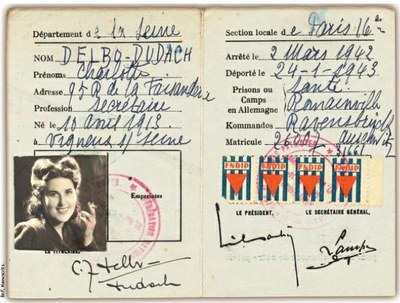 Département de la Seine
NOM DELBO-DUDACH
Prénoms Charlotte
Adresse 95 R de la Faisanderie
Profession Secrétaire
Né le 10 août 1913
à Vigneux s/ Seine
Empreintes
LE TITULAIRE,
C Delbo
Dudach
Section locale de Paris 16e
Arrêté le 2 Mars 1942
Déporté le 24-1-1943
Prisons ou Camps en Allemagne Santé
Romainville
Kommandos Ravensbrück
Matricule Auschwitz
31661
FNDIP FNDIP FNDIP FNDIP
LE PRÉSIDENT, LE SECRÉTAIRE GÉNÉRAL,